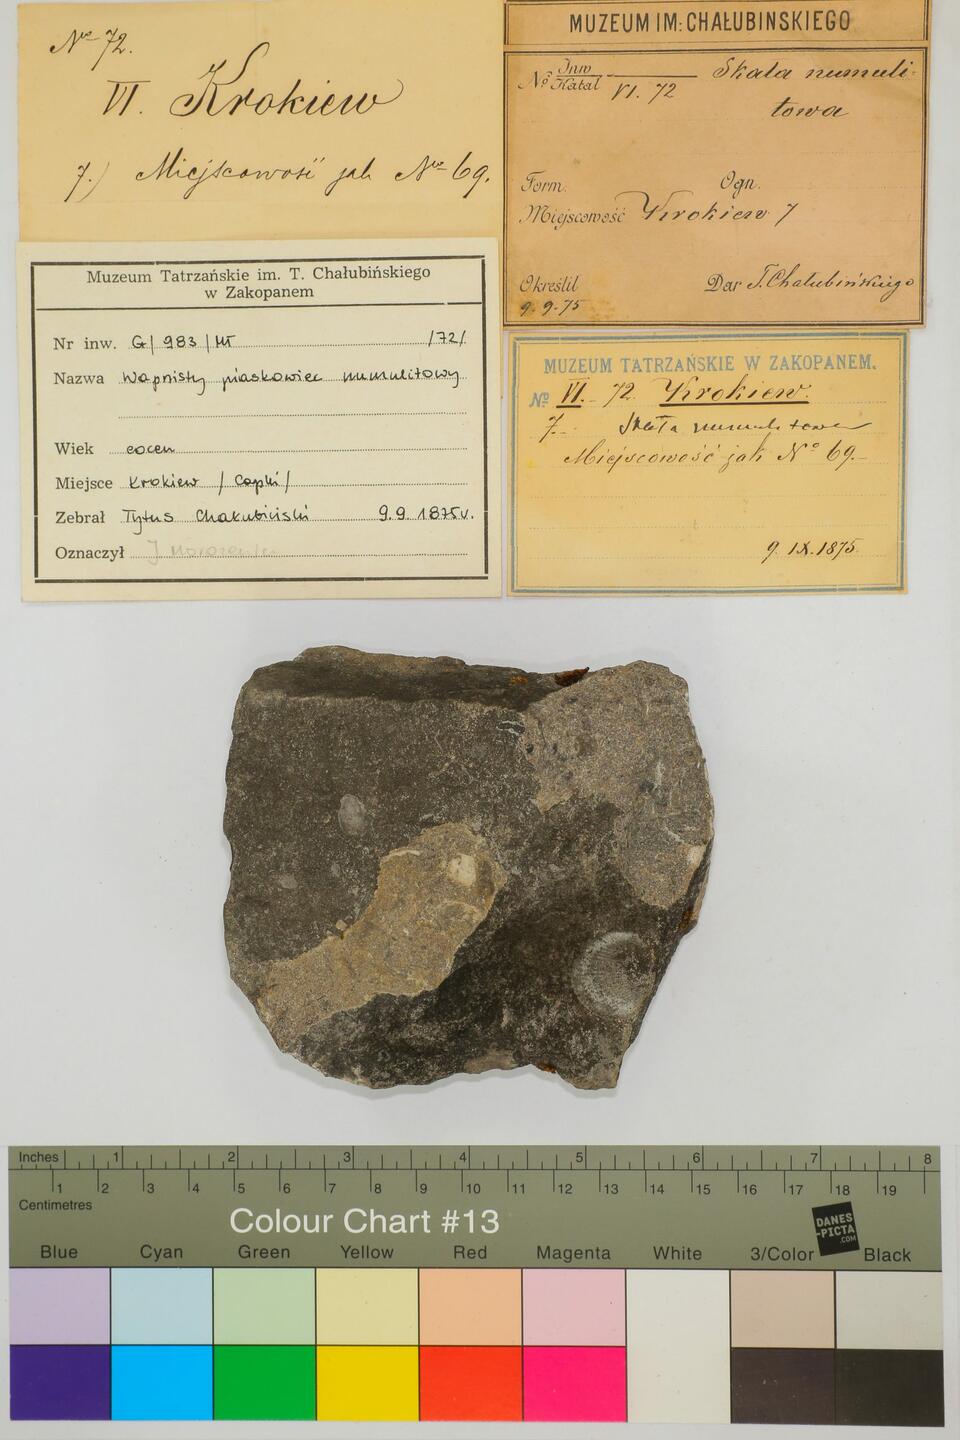 No 72.
VI. Krokiew
7.) Miejscowość jak No 69.
MUZEUM IM. CHAŁUBINSKIEGO
No Inw Katal VI. 72 Skała numuli-
towa
Form. Ogn.
Miejscowość Krokiew 7
Określił Dar T. Chałubińskiego
9.9.75
Muzeum Tatrzańskie im. T. Chałubińskiego
w Zakopanem
Nr inw. G/983/MT /72/
Nazwa Wapnisty piaskowiec numulitowy
Wiek eocen
Miejsce Krokiew /Capki/
Zebrał Tytus Chałubiński 9.9.1875r.
Oznaczył J
MUZEUM TATRZAŃSKIE W ZAKOPANEM.
No VI. 72. Krokiew.
7. Skała numulitowa
Miejscowość jak No 69.
9.IX.1875.
Inches 1 2 3 4 5 6 7 8
1 2 3 4 5 6 7 8 9 10 11 12 13 14 15 16 17 18 19
Centimetres
Colour Chart #13
DANES
-PICTA
.COM
Blue Cyan Green Yellow Red Magenta White 3/Color Black